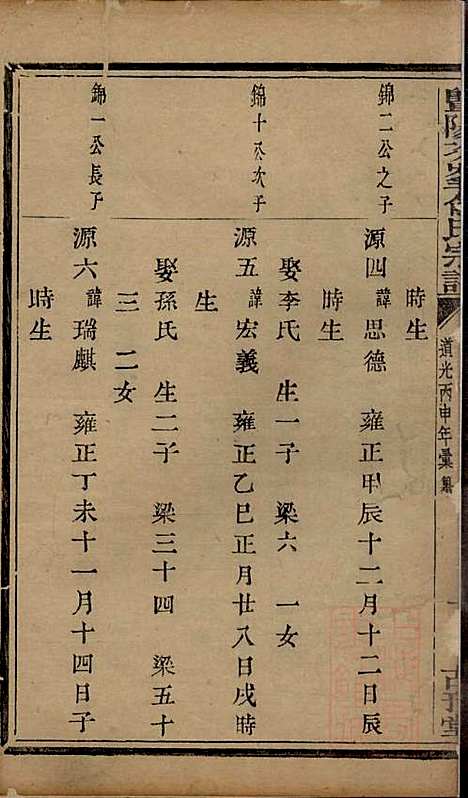 氏宗譜
道光丙申年彙纂
時生
錦二公之子
源四 諱 思德 雍正甲辰十二月十二日辰
時生
娶李氏 生一子 梁六 一女
錦十公次子
源五 諱 宏義 雍正乙巳正月廿八日戌時
生
娶孫氏 生二子 梁三十四 梁五十
三 二女
錦一公長子
源六 諱 瑞麒 雍正丁未十一月十四日子
時生